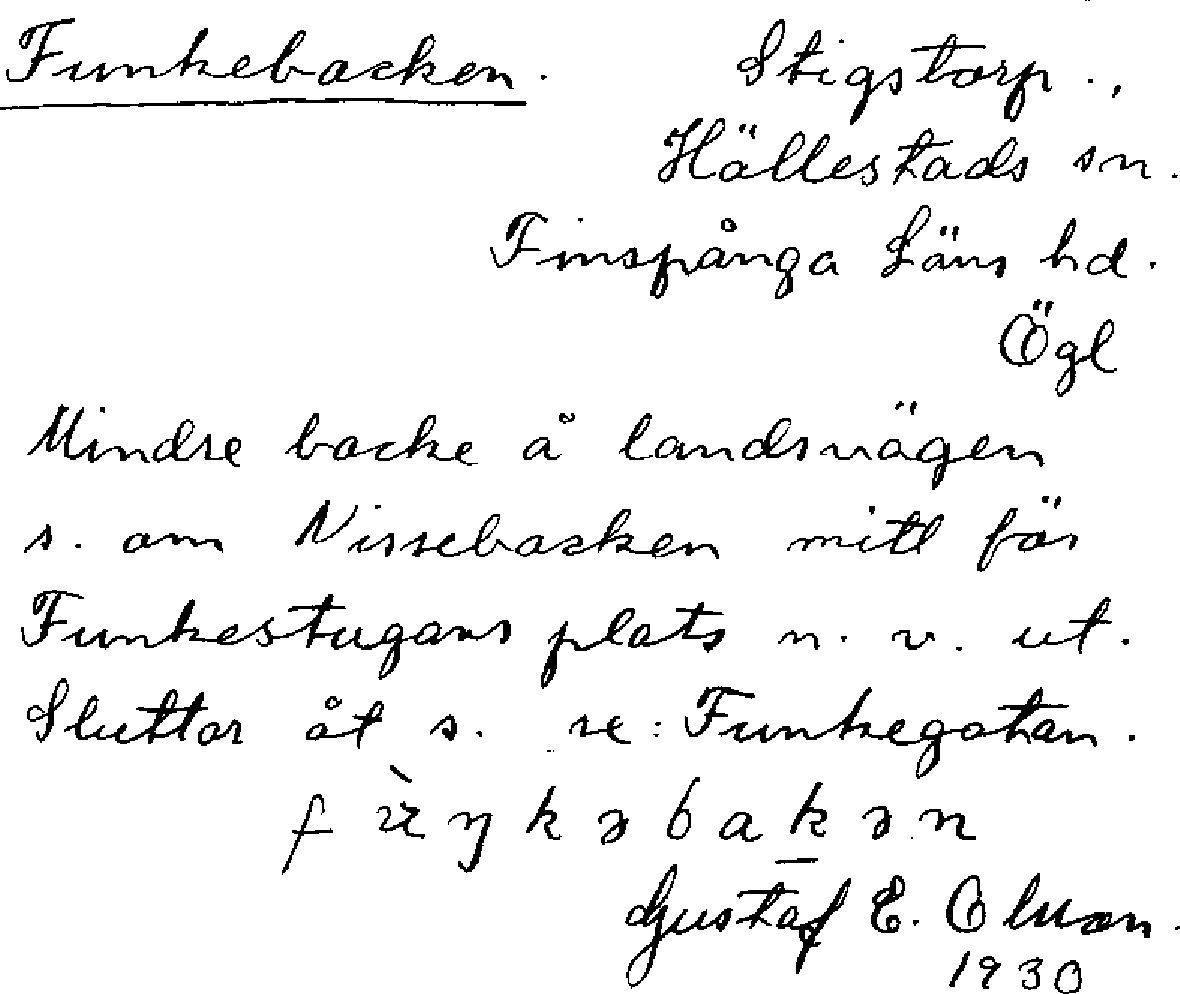 Funkebacken. Stigstorp.,
Hällestads sn.
Finspånga Läns hd.
Ögl
Mindre backe å landsvägen
s. om Nissebacken mitt för
Funkestugans plats n. v. ut.
Sluttar åt s. se: Funkegatan.
Gustaf E. Olsson.
1930